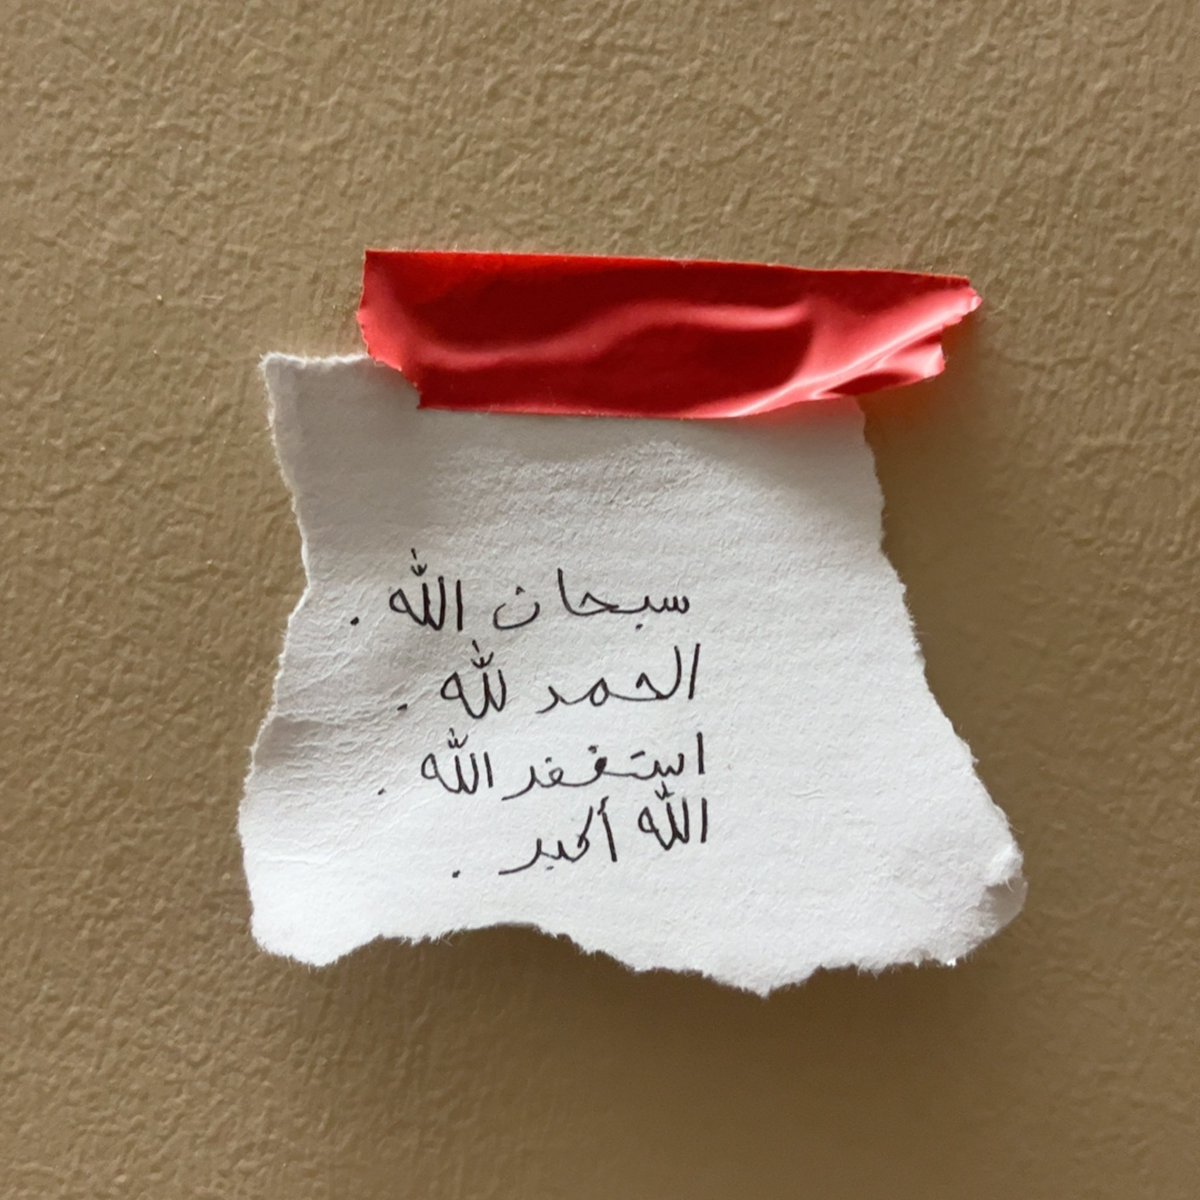 سبحان الله .
الحمد لله .
استغفر الله .
الله أكبر .